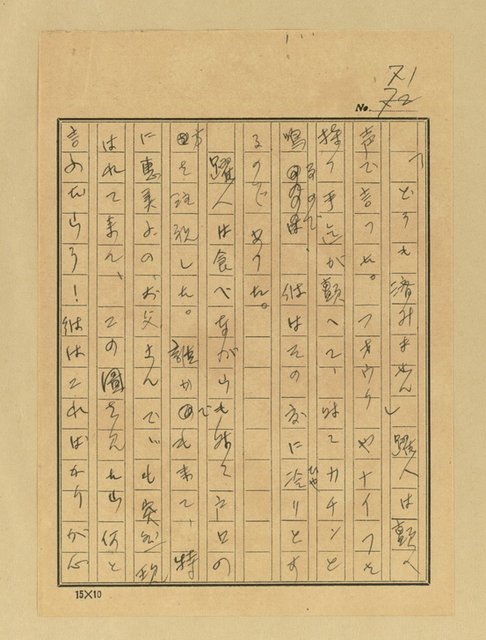 No. 71
72
「どうも済みません」 躍人は顫へ
声で言つた。フオウクやナイフを
操る手迄が顫へて、時々カチンと
鳴るので、彼はその度に冷りとす
ひや
るのであつた。
躍人は食べながらも時々戸口の
方を注視した。誰かでも来て、特
に恵美子の、お父さんでも突然現
はれて来て、この図を見たら何と
言ふだらう！彼はこればかりが心
15×10